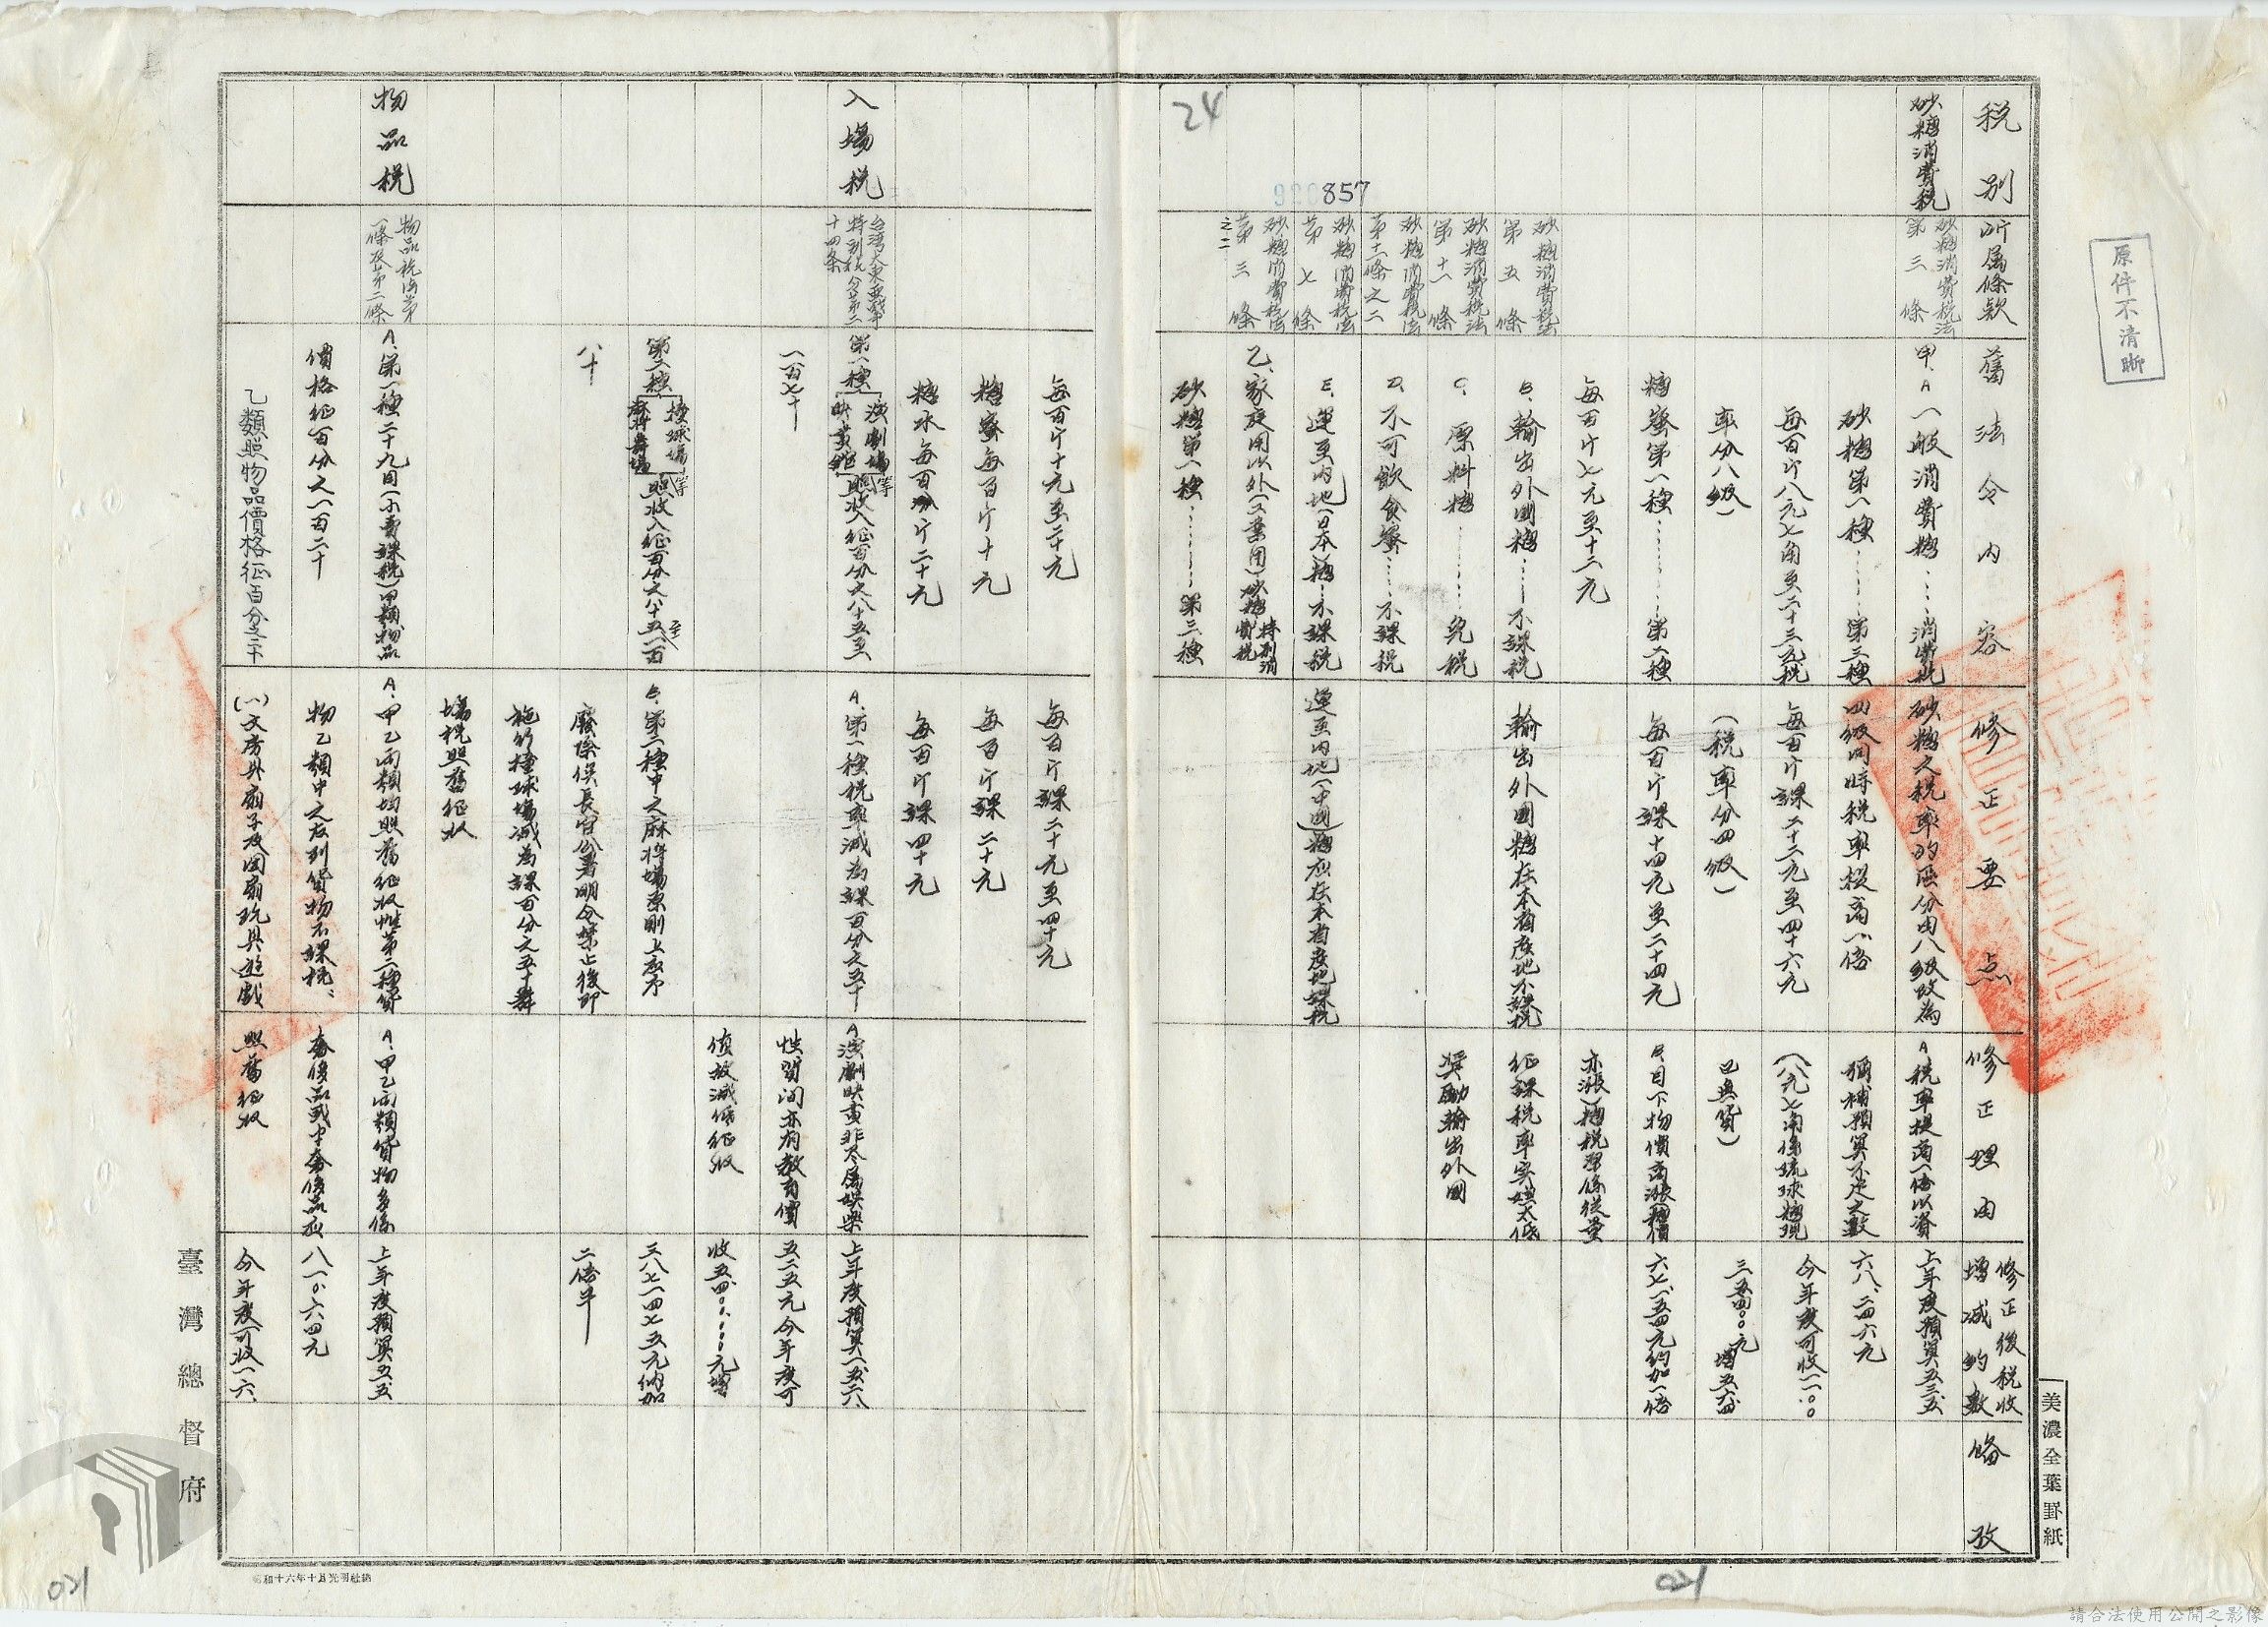 税別
所屬條款
舊法令内容
修正要点
修正理由
修正後税收
增减約數
俻攷
砂糖消費税
砂糖消費税法
第三條
甲.A一般消費糖……消費税
砂糖第一種……第三種
每百斤八元七角至二十三元税
率分八級)
糖蜜第一種……第二種
每百斤七元至十二元
砂糖消費税法
第五條
B.輸出外国糖……不課税
砂糖消費税法
第十一條
C.原料糖……免税
砂糖消費税法
第十一條之二
D.不可飲食蜜……不課税
砂糖消費税法
第七條
E.運至内地(日本)糖…不課税
砂糖消費税法
第三條
之二
乙.家庭用以外(工業用)砂糖特别消費税
砂糖第一種………第三種
砂糖之税率的區分由八級改為
四級同時税率提高一倍
每百斤課二十二元至四十六元
(税率分四級)
每百斤課十四元至二十四元
輸出外国糖在本省産地不課税
運至内地(中國)糖應在本省産地課税
A税率提高一倍以資
彌補預算不足之數
(八元七角係琉球糖現
已無貨)
B.目下物價高漲(糖價
亦漲)糖税單係從量
征課税率实嫌太低
獎勵輸出外國
上年度預算五三、五
六八、二四六元
今年度可收一一〇、〇
三五、四〇〇元增五、四
六七、一五四元約加一倍
24
857
原件不清晰
美濃全葉罫紙
每百斤十元至二十元
糖蜜每百斤十元
糖水每百斤二十元
每百斤課二十元至四十元
每百斤課二十元
每百斤課四十元
入場税
台湾大東亜戦争
特别税令第二
十四条
第一種 演劇場 映画館 等 照收入征百分之八十五至
一百七十
第二種 撞球場 麻雀舞場 等 照收入征百分之八十五至一百
八十
A.第一種税率减為課百分之五十
B.第二種中之麻将場原则上應予
廢除俟長官公署明令禁止後即
施行撞球場减為課百分之五十舞
場税照舊征收
A演劇映画非尽属娱樂
性質间亦有教育價
值故减低征收
上年度預算一五、二六八、
五二五元今年度可
收五四、〇〇〇、〇〇〇元增
三八、七一四七五元約加
二倍半
物品税
物品税法第
一條及第二條
A.第一種二十九目(小賣課税)甲類物品
價格征百分之一百二十
乙類照物品價格征百分之二十
A.甲乙兩類均照舊征收惟第二種貨
物乙類中之左列貨物不課税:
(一)文房具扇子及団扇玩具遊戯
A.甲乙兩類貨物多係
奢侈品或半奢侈品应
照舊征收
上年度預算五、五
八一、〇六四元
今年度可收一六、
臺灣總督府
昭和十六年十月光明社納
021
021
請合法使用公開之影像